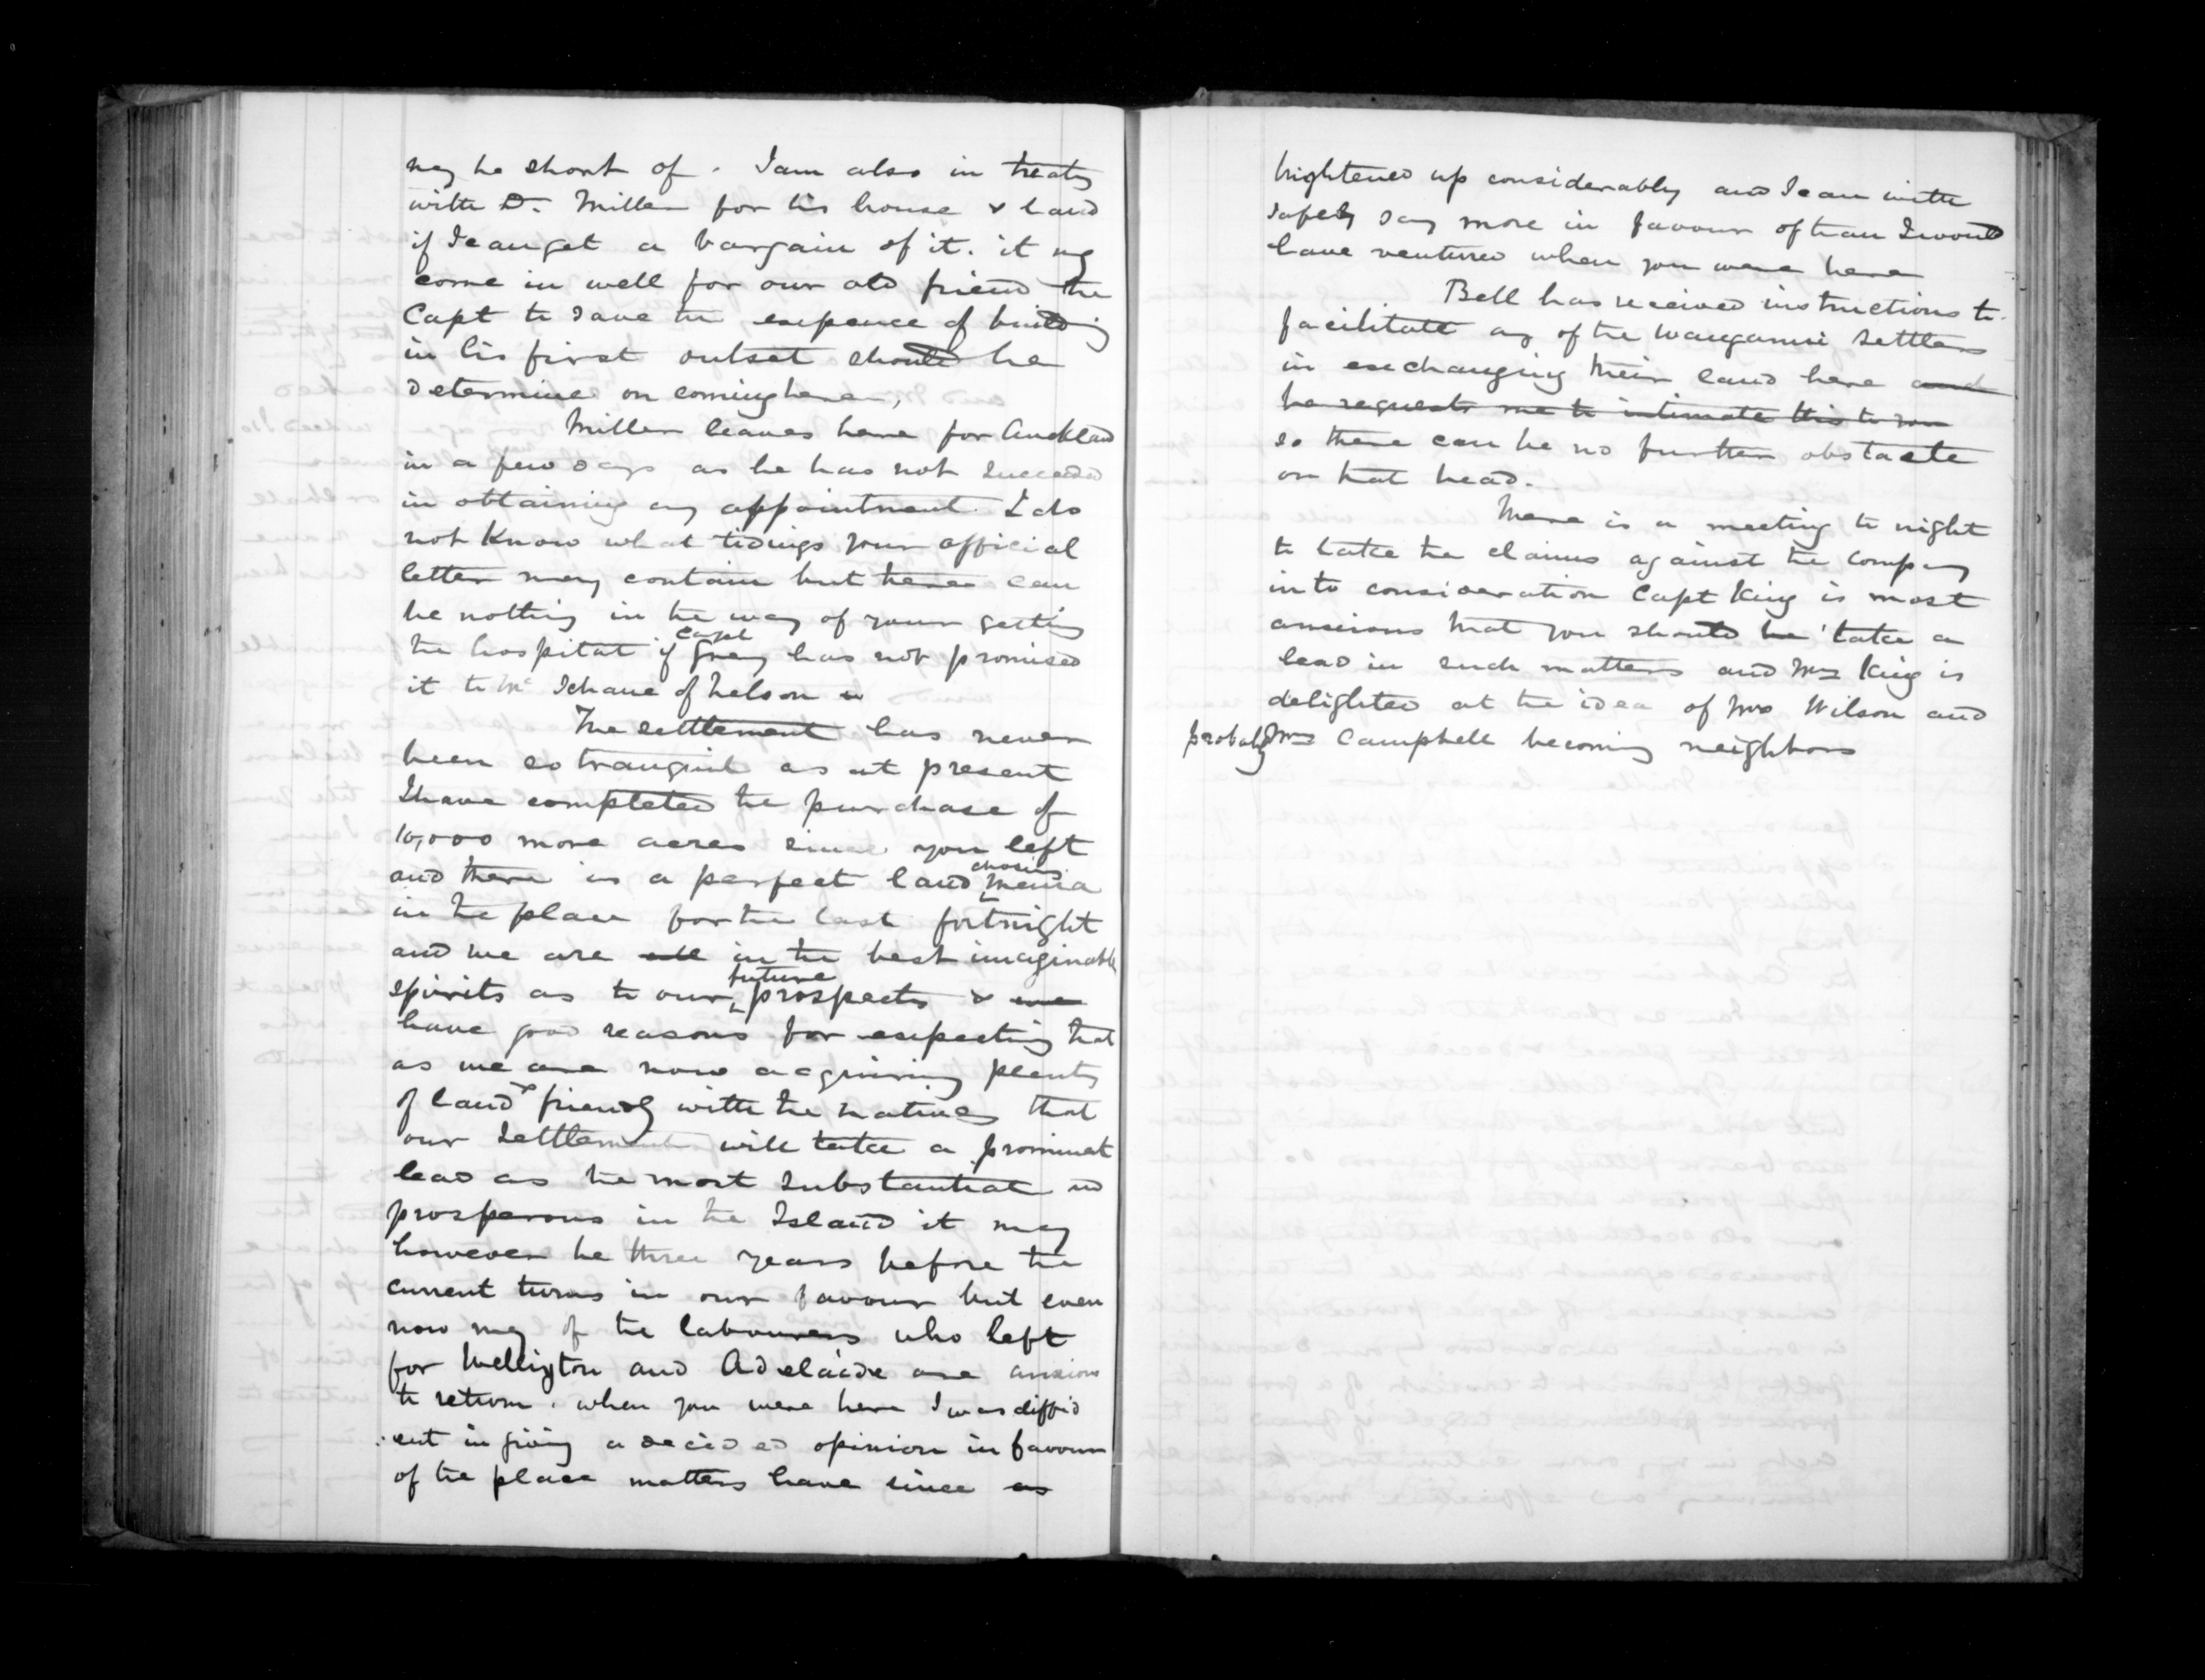 may be short of. I am also in treaty
with Dr. Miller for his house & land
if I can get a bargain of it. it may
come in well for our old friend the
Capt to save the expence of building
in his first outset should he
determine on coming here,
Miller leaves here for Auckland
in a few days as he has not succeeded
in obtaining any appointment. I do
not know what tidings your official
letter may contain but there can
be nothing in the way of your getting
the hospital if Capt Grey has not promised
it to Mc Schane of Nelson
The settlement has never
been so tranquil as at present
I have completed the purchase of
10,000 more acres since you left
and there is a perfect land chosing mania
in the place for the last fortnight
and we are all in the best imaginable
spirits as to our future prospects & we
have good reasons for expecting that
as we are now acquiring plenty
of land & friendly with the natives that
our settlement will take a prominent
lead as the most substantial and
prosperous in the Island it may
however be three years before the
current turns in our favour but even
now many of the labourers who left
for Wellington and Adelaide are anxious
to return. when you were here I was diffid
ent in giving a decided opinion in favour
of the place matters have since as
brightened up considerably and I can with
safety say more in favour of than I would
have ventured when you were here
Bell has received instructions to
facilitate any of the Wanganui settlers
in exchanging their land here and
he requests me to intimate this to you
so there can be no further obstacle
on that head.
There is a meeting to night
to take the claims against the Company
into consideration Capt King is most
anxious that you should be take a
lead in such matters and Mrs King is
delighted at the idea of Mrs Wilson and
probably Mrs Campbell becoming neighbors